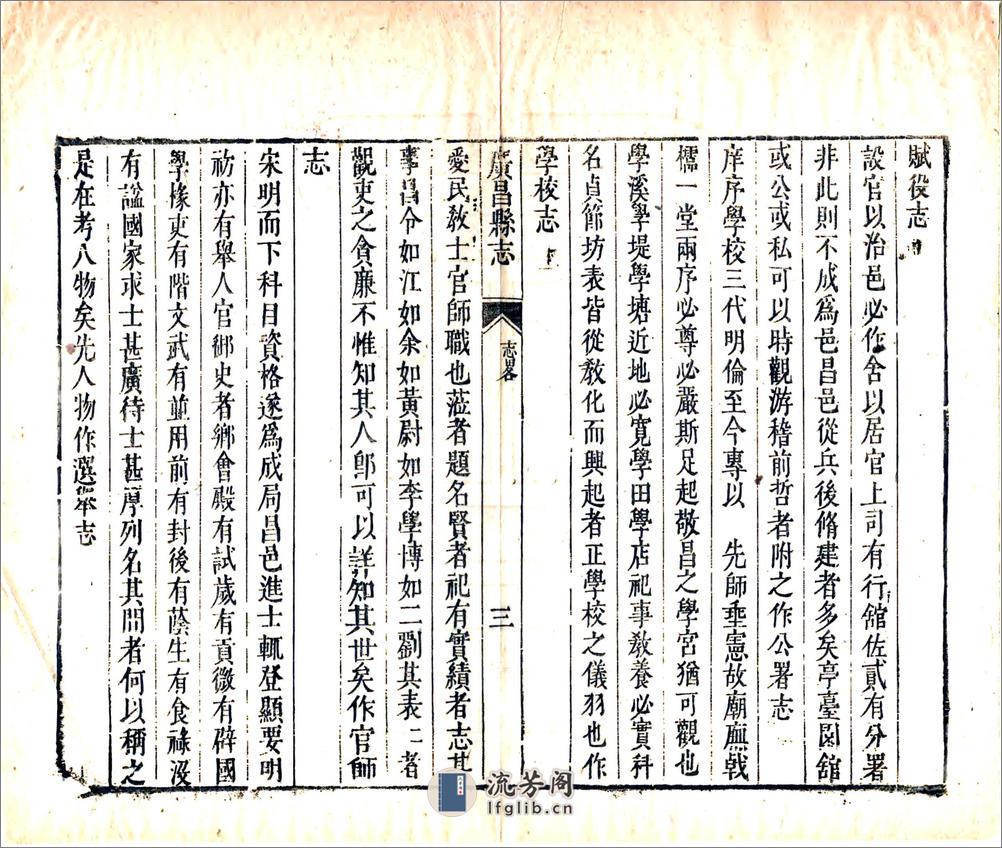 賦役志
設官以治邑必作舍以居官上司有行舘佐貳有分署
非此則不成爲邑昌邑從兵後脩建者多矣亭臺園舘
或公或私可以時觀游稽前哲者附之作公署志
庠序學校三代明倫至今專以 先師垂憲故廟廡戟
櫺一堂兩序必尊必嚴斯足起敬昌之學宮猶可觀也
學溪學堤學塘近地必寛學田學店祀事敎養必實科
名貞節坊表皆從敎化而興起者正學校之儀羽也作
學校志
廣昌縣志 志畧 三
愛民敎士官師職也蒞者題名賢者祀有實績者志其
事昌令如江如余如黃尉如李學博如二劉其表表者
觀吏之貪廉不惟知其人卽可以詳知其世矣作官師
志
宋明而下科目資格遂爲成局昌邑進士輒登顯要明
初亦有舉人官御史者鄉會殿有試歲有貢徵有辟國
學掾吏有階文武有並用前有封後有蔭生有食祿沒
有謚國家求士甚廣待士甚厚列名其間者何以稱之
是在考人物矣先人物作選舉志
流芳阁
lfglib.cn